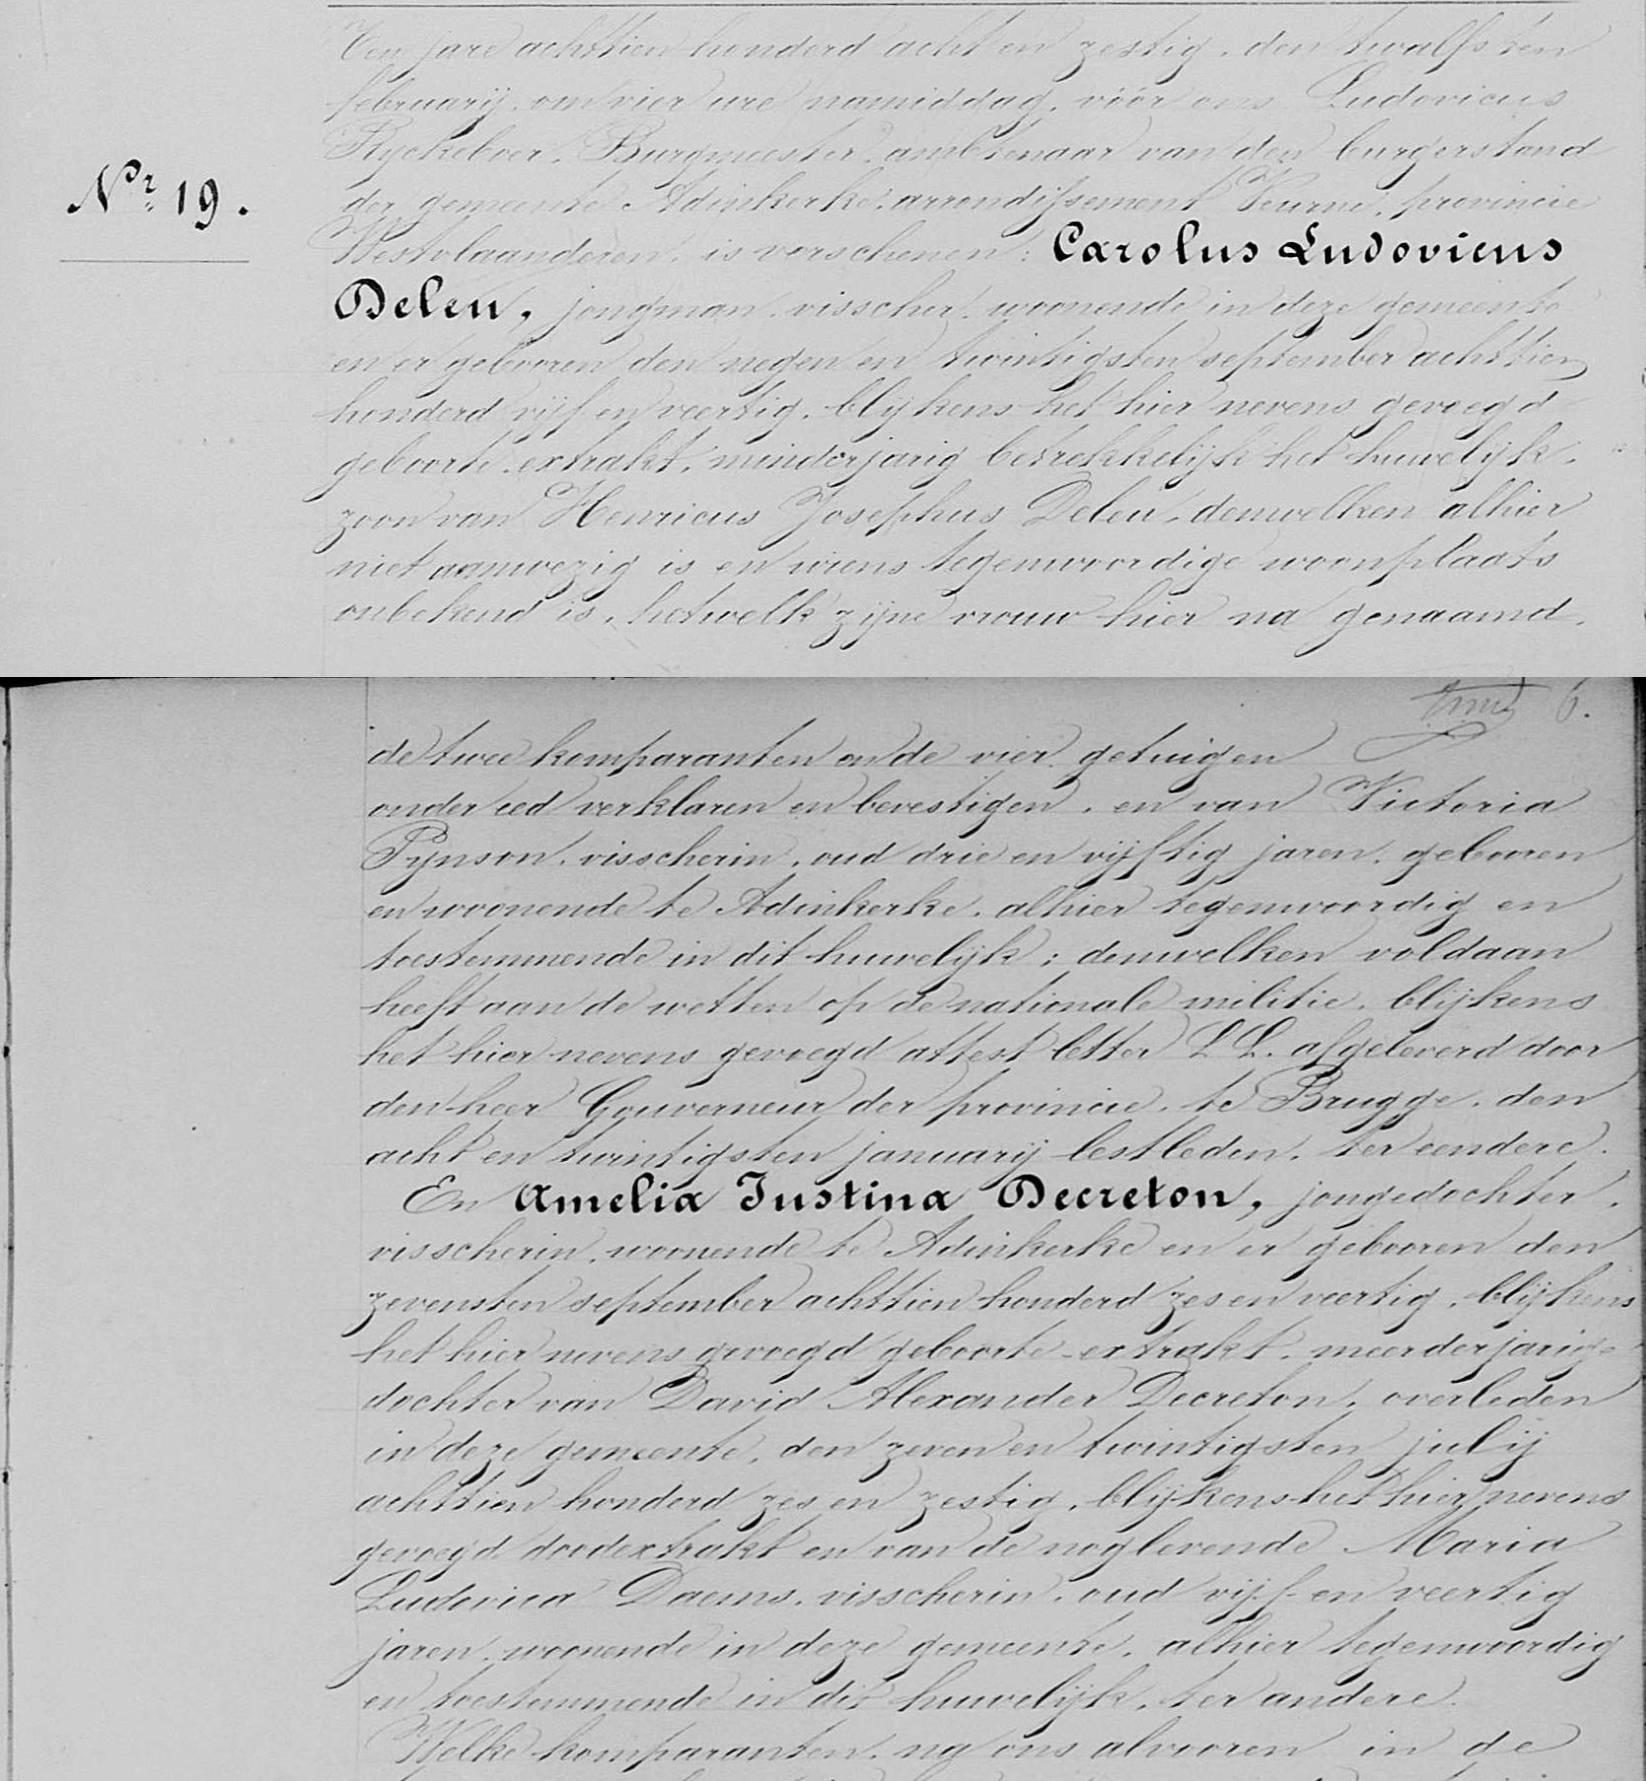 Ten jare achttien honderd acht en zestig, den twalfsten
february, om vier ure namiddag, vóór ons Ludovicus
Ryckeboer, Burgmeester, ambtenaar van den burgerstand
der gemeente Adinkerke, arrondissement Veurne, provincie
Nr. 19.
Westvlaanderen, is verschenen: Carolus Ludovicus
Deleu, jongman, visscher, woonende in deze gemeente
en er gebooren den negen en twintigsten september achttien
honderd vijf en veertig, blijkens het hier nevens gevoegd
geboorte-extrakt, minderjarig betrekkelijk het huwelijk,
zoon van Henricus Josephus Deleu, denwelken alhier
niet aanwezig is en wiens tegenwoordige woonplaats
onbekend is, hetwelk zijne vrouw hier na genaamd,
6.
de twee komparanten en de vier getuigen
onder eed verklaren en bevestigen, en van Victoria
Pynson, visscherin, oud drie en vijftig jaren, gebooren
en woonende te Adinkerke, alhier tegenwoordig en
toestemmende in dit huwelijk; denwelken voldaan
heeft aan de wetten op de nationale militie, blijkens
het hier nevens gevoegd attest letter L L. afgeleverd door
den heer Gouverneur der provincie, te Brugge, den
acht en twintigsten january lestleden, ter eendere.
En Amelia Justina Decreton, jongedochter,
visscherin, woonende te Adinkerke en er gebooren den
zevensten september achttien honderd zes en veertig, blijkens
het hier nevens gevoegd geboorte-extrakt, meerderjarige
dochter van David Alexander Decreton, overleden
in deze gemeente, den zeven en twintigsten julij
achttien honderd zes en zestig, blijkens het hier nevens
gevoegd doodextrakt en van de noglevende Maria
Ludovica Daems, visscherin, oud vijf en veertig
jaren, woonende in deze gemeente, alhier tegenwoordig
en toestemmende in dit huwelijk, ter andere.
Welke komparanten, na ons alvooren in de